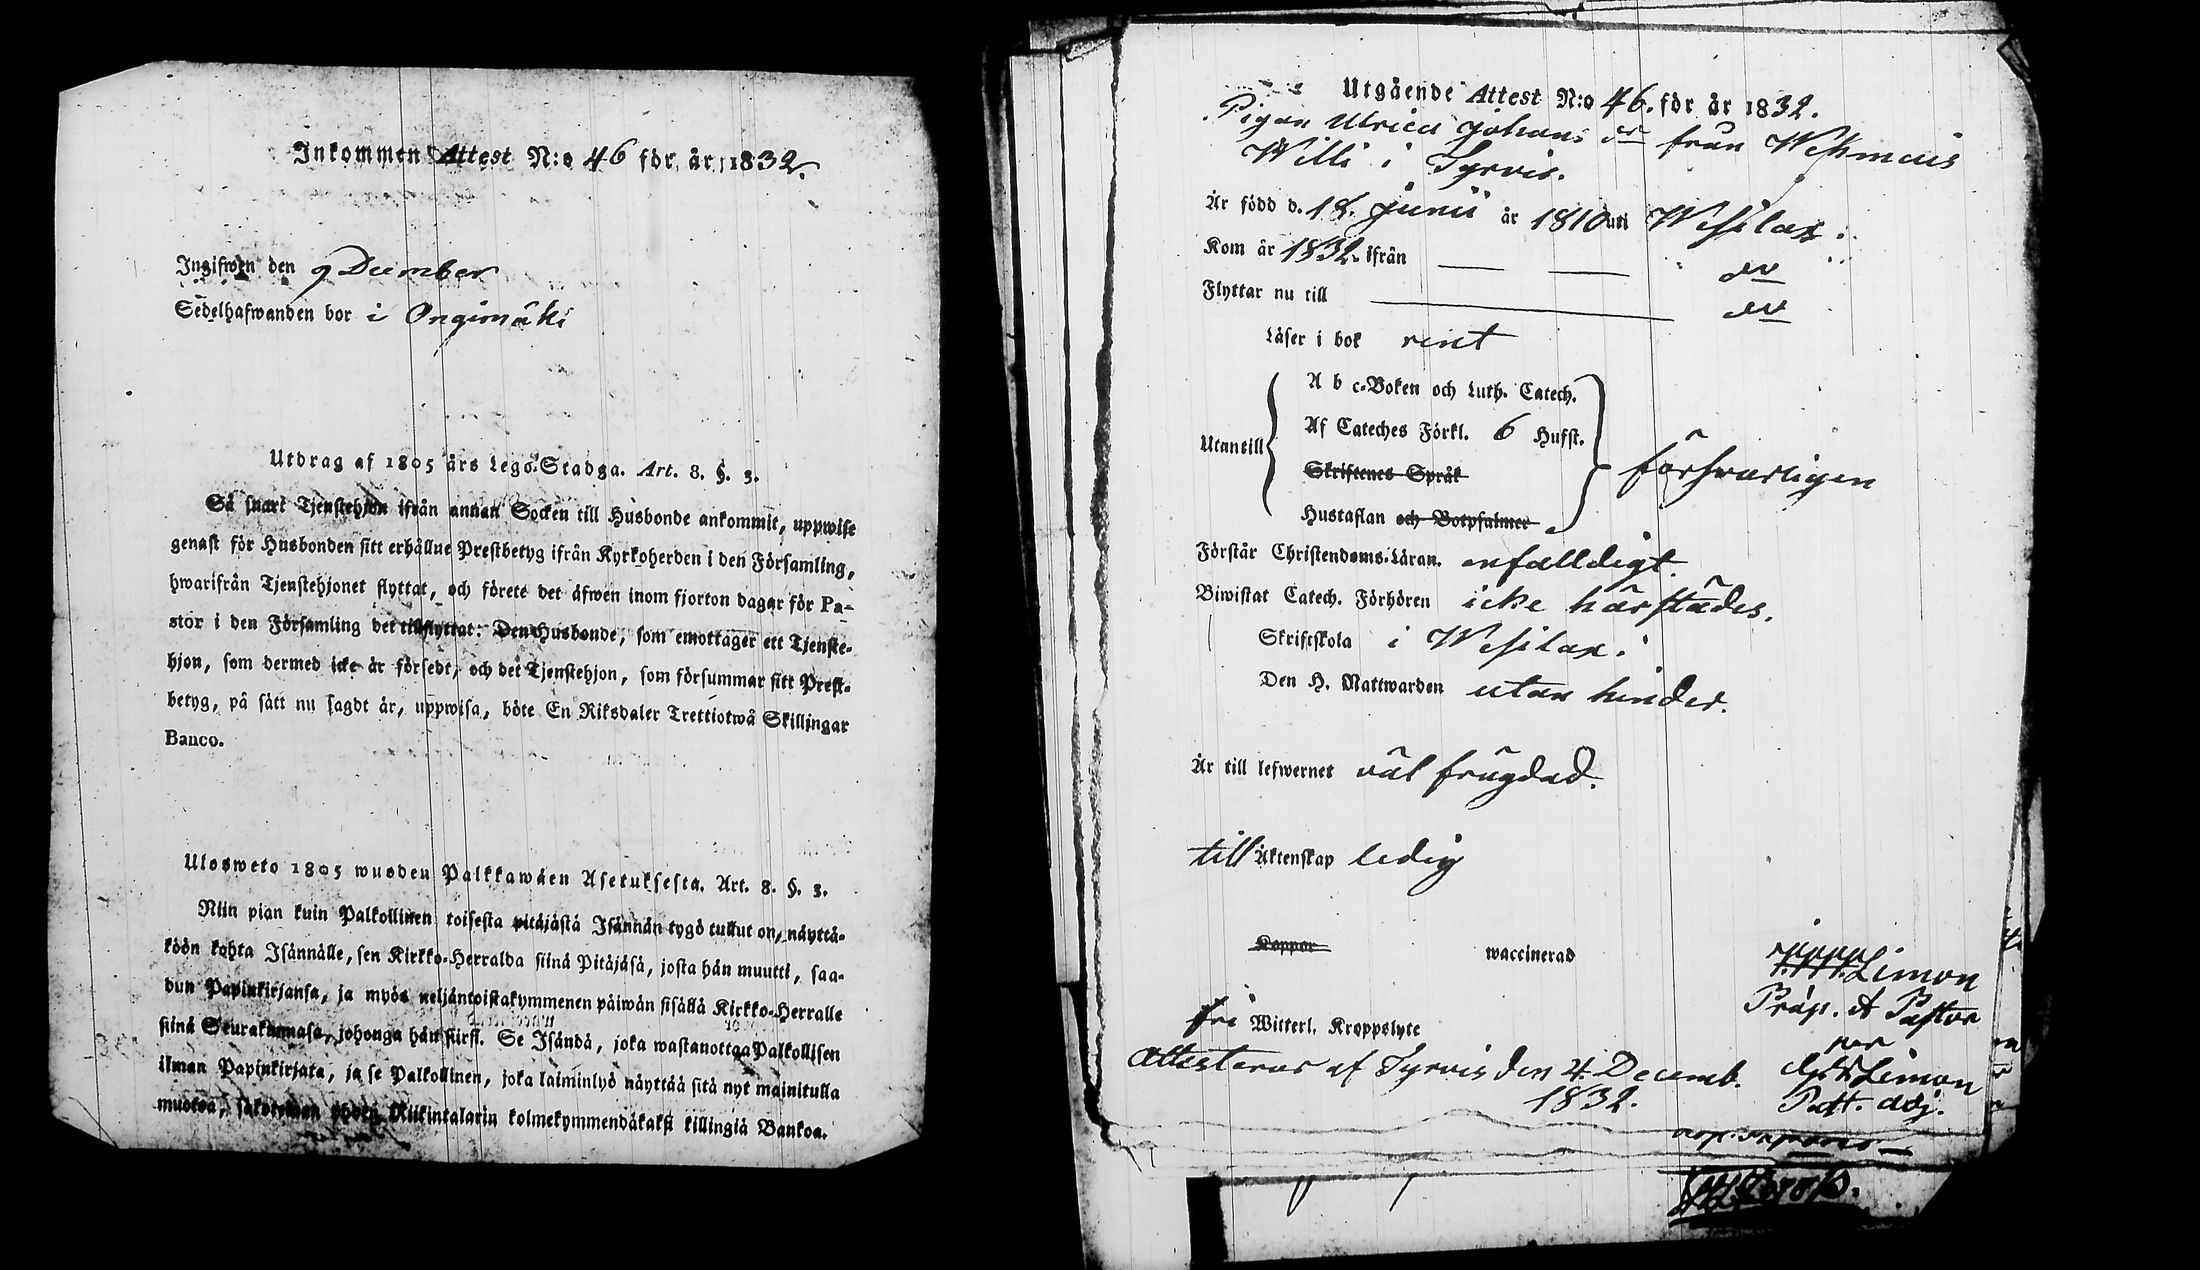 Inkommen Attest N:o 46 för år 1832.
Ingifwen den 9 December
Sedelhafwanden bor i Ongimäki
Utdrag af 1805 års Lego-Stadga. Art. 8. §. 3.
Så snart Tjenstehjon ifrån annan Socken till Husbonde ankommit, uppwise
genast för Husbonden sitt erhållne Prestbetyg ifrån Kyrkoherden i den Församling,
hwarifrån Tjenstehjonet flyttat, och förete det äfwen inom fjorton dagar för Pa-
stor i den Församling det tillflyttat: Den Husbonde, som emottager ett Tjenste-
hjon, som dermed icke är försedt, och det Tjenstehjon, som försummar sitt Prest-
betyg, på sätt nu sagdt är, uppwisa, böte En Riksdaler Trettiotwå Skillingar
Banco.
Ulosweto 1805 wuoden Palkkawäen Asetuksesta. Art. 8. §. 3.
Niin pian kuin Palkollinen toisesta pitäjästä Isännän tygö tullut on, näyttä-
köön kohta Isännälle, sen Kirkko-Herralda siinä Pitäjäsä, josta hän muutti, saa-
dun Papinkirjansa, ja myös neljäntoistakymmenen päiwän sisällä Kirkko-Herralle
siinä Seurakunnasa, johonga hän siirsi. Se Isändä, joka wastanottaa Palkollisen
ilman Papinkirjata, ja se Palkollinen, joka laiminlyö näyttää sitä nyt mainitulla
muotoa, Riikintalarin kolmekymmendäkaksi killingiä Bankoa.
Utgående Attest N:o 46. för år 1832.
Pigan Ulrica Johans dr från
Willi i Tyrvis.
Är född d. 18. Junii år 1810 uti Wesilax.
Kom år 1832. ifrån — — do
Flyttar nu till — do
Läser i bok rent
A b c-Boken och Luth. Catech.
Af Cateches Förkl. 6 Hufst.
Utantill försvarligen
Skriftenes Språk
Hustaflan och Botpsalmer
Förstår Christendoms-Läran. enfalldigt.
Biwistat Catech. Förhören icke härstädes.
Skriftskola i Wesilax.
Den H. Nattwarden utan hinder.
Är till lefwernet väl frägdad.
till Äktenskap ledig
Koppor waccinerad
Limon
Präp. & Pastor
fri Witterl. Kroppslyte
per
Attesterar af Tyrvis den 4 Decemb. Limon
1832. Past. adj.